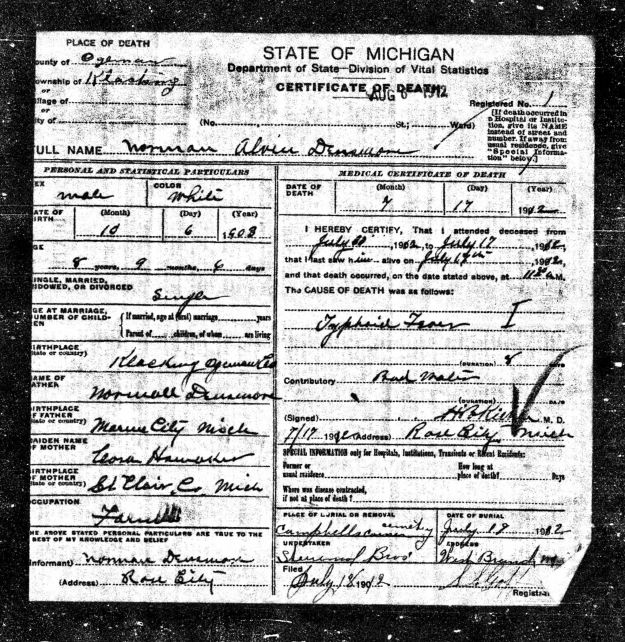 PLACE OF DEATH
STATE OF MICHIGAN
Department of State—Division of Vital Statistics
CERTIFICATE OF DEATH
AUG 6 1912
ounty of Ogemaw
ownship of Klacking
or
illage of
or
ity of
(No. St.; Ward)
Registered No. 1
(If death occurred in a Hospital or Institution, give its NAME instead of street and number. If away from usual residence, give "Special Information" below.)
FULL NAME Norman Alven Densmore
PERSONAL AND STATISTICAL PARTICULARS
EX male
COLOR White
ATE OF BIRTH
(Month) (Day) (Year)
10 6 1903
AGE
8 years, 9 months, 6 days
SINGLE, MARRIED, WIDOWED, OR DIVORCED
Single
AGE AT MARRIAGE, NUMBER OF CHILDREN
(If married, age at (first) marriage years
Parent of children, of whom are living
BIRTHPLACE
(State or country) Klacking Ogemaw Co
NAME OF FATHER Densmore
BIRTHPLACE OF FATHER
(State or country) Marine City Mich
MAIDEN NAME OF MOTHER
BIRTHPLACE OF MOTHER
(State or country) St Clair, Co Mich
OCCUPATION
HE ABOVE STATED PERSONAL PARTICULARS ARE TRUE TO THE
BEST OF MY KNOWLEDGE AND BELIEF
Informant) Norman Densmore
(Address) Rose City
MEDICAL CERTIFICATE OF DEATH
DATE OF DEATH
(Month) (Day) (Year)
7 17 1912
I HEREBY CERTIFY, That I attended deceased from
July 1912, to July 17 1912,
that I last saw him alive on July 1912,
and that death occurred, on the date stated above, at M.
The CAUSE OF DEATH was as follows:
Typhoid Fever I
(DURATION) 8 DAYS
Contributory Bad Water
(DURATION) DAYS
(Signed) M. D.
7/17 191 (Address) Rose City Mich
SPECIAL INFORMATION only for Hospitals, Institutions, Transients or Recent Residents:
Former or usual residence
How long at place of death? Days
Where was disease contracted, if not at place of death?
PLACE OF BURIAL OR REMOVAL
Campbells cemetery
DATE OF BURIAL
July 18 1912
UNDERTAKER
Bros
ADDRESS
West Branch
Filed
July 1912
Registrar